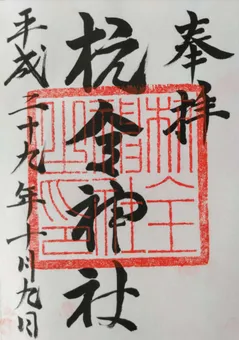 奉拝
杭全神社
平成二十九年十月九日
杭全神社之印